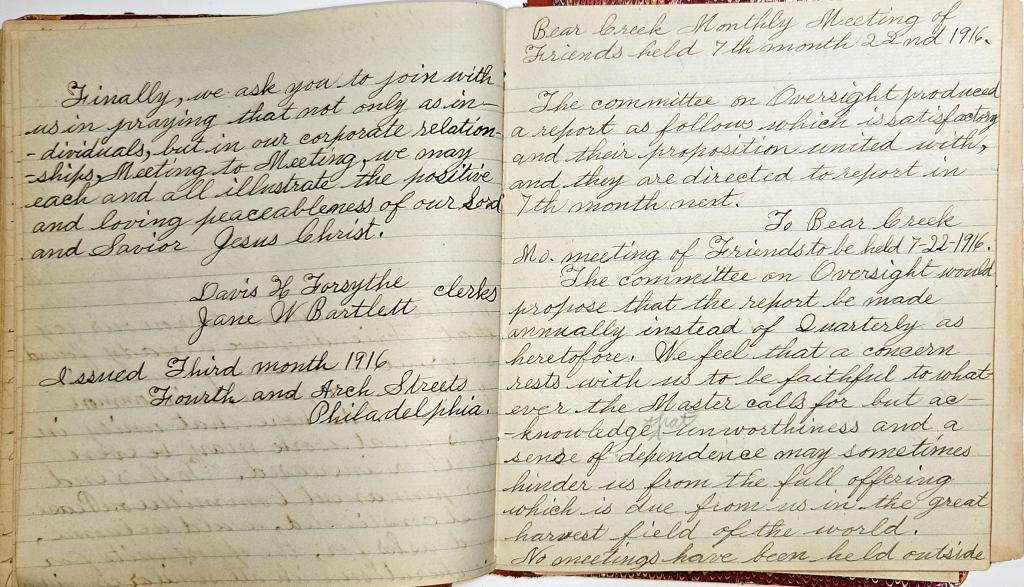 Finally, we ask you to join with
us in praying that not only as in-
-dividuals, but in our corporate relation-
-ships, Meeting to Meeting, we may
each and all illustrate the positive
and loving peaceableness of our Lord
and Savior Jesus Christ.
Davis H Forsythe clerks
Jane W Bartlett
Issued Third month 1916
Fourth and Arch Streets
Philadelphia.
Bear Creek Monthly Meeting of
Friends held 7th month 22nd 1916.
The committee on Oversight produced
a report as follows which is satisfactory
and their proposition united with,
and they are directed to report in
7th month next.
To Bear Creek
Mo. meeting of Friends to be held 7-22-1916.
The committee on Oversight would
propose that the report be made
annually instead of Quarterly as
heretofore. We feel that a concern
rests with us to be faithful to what-
ever the Master calls for but ac-
-knowledge that unworthiness and a
sense of dependence may sometimes
hinder us from the full offering
which is due from us in the great
harvest field of the world.
No meetings have been held outside